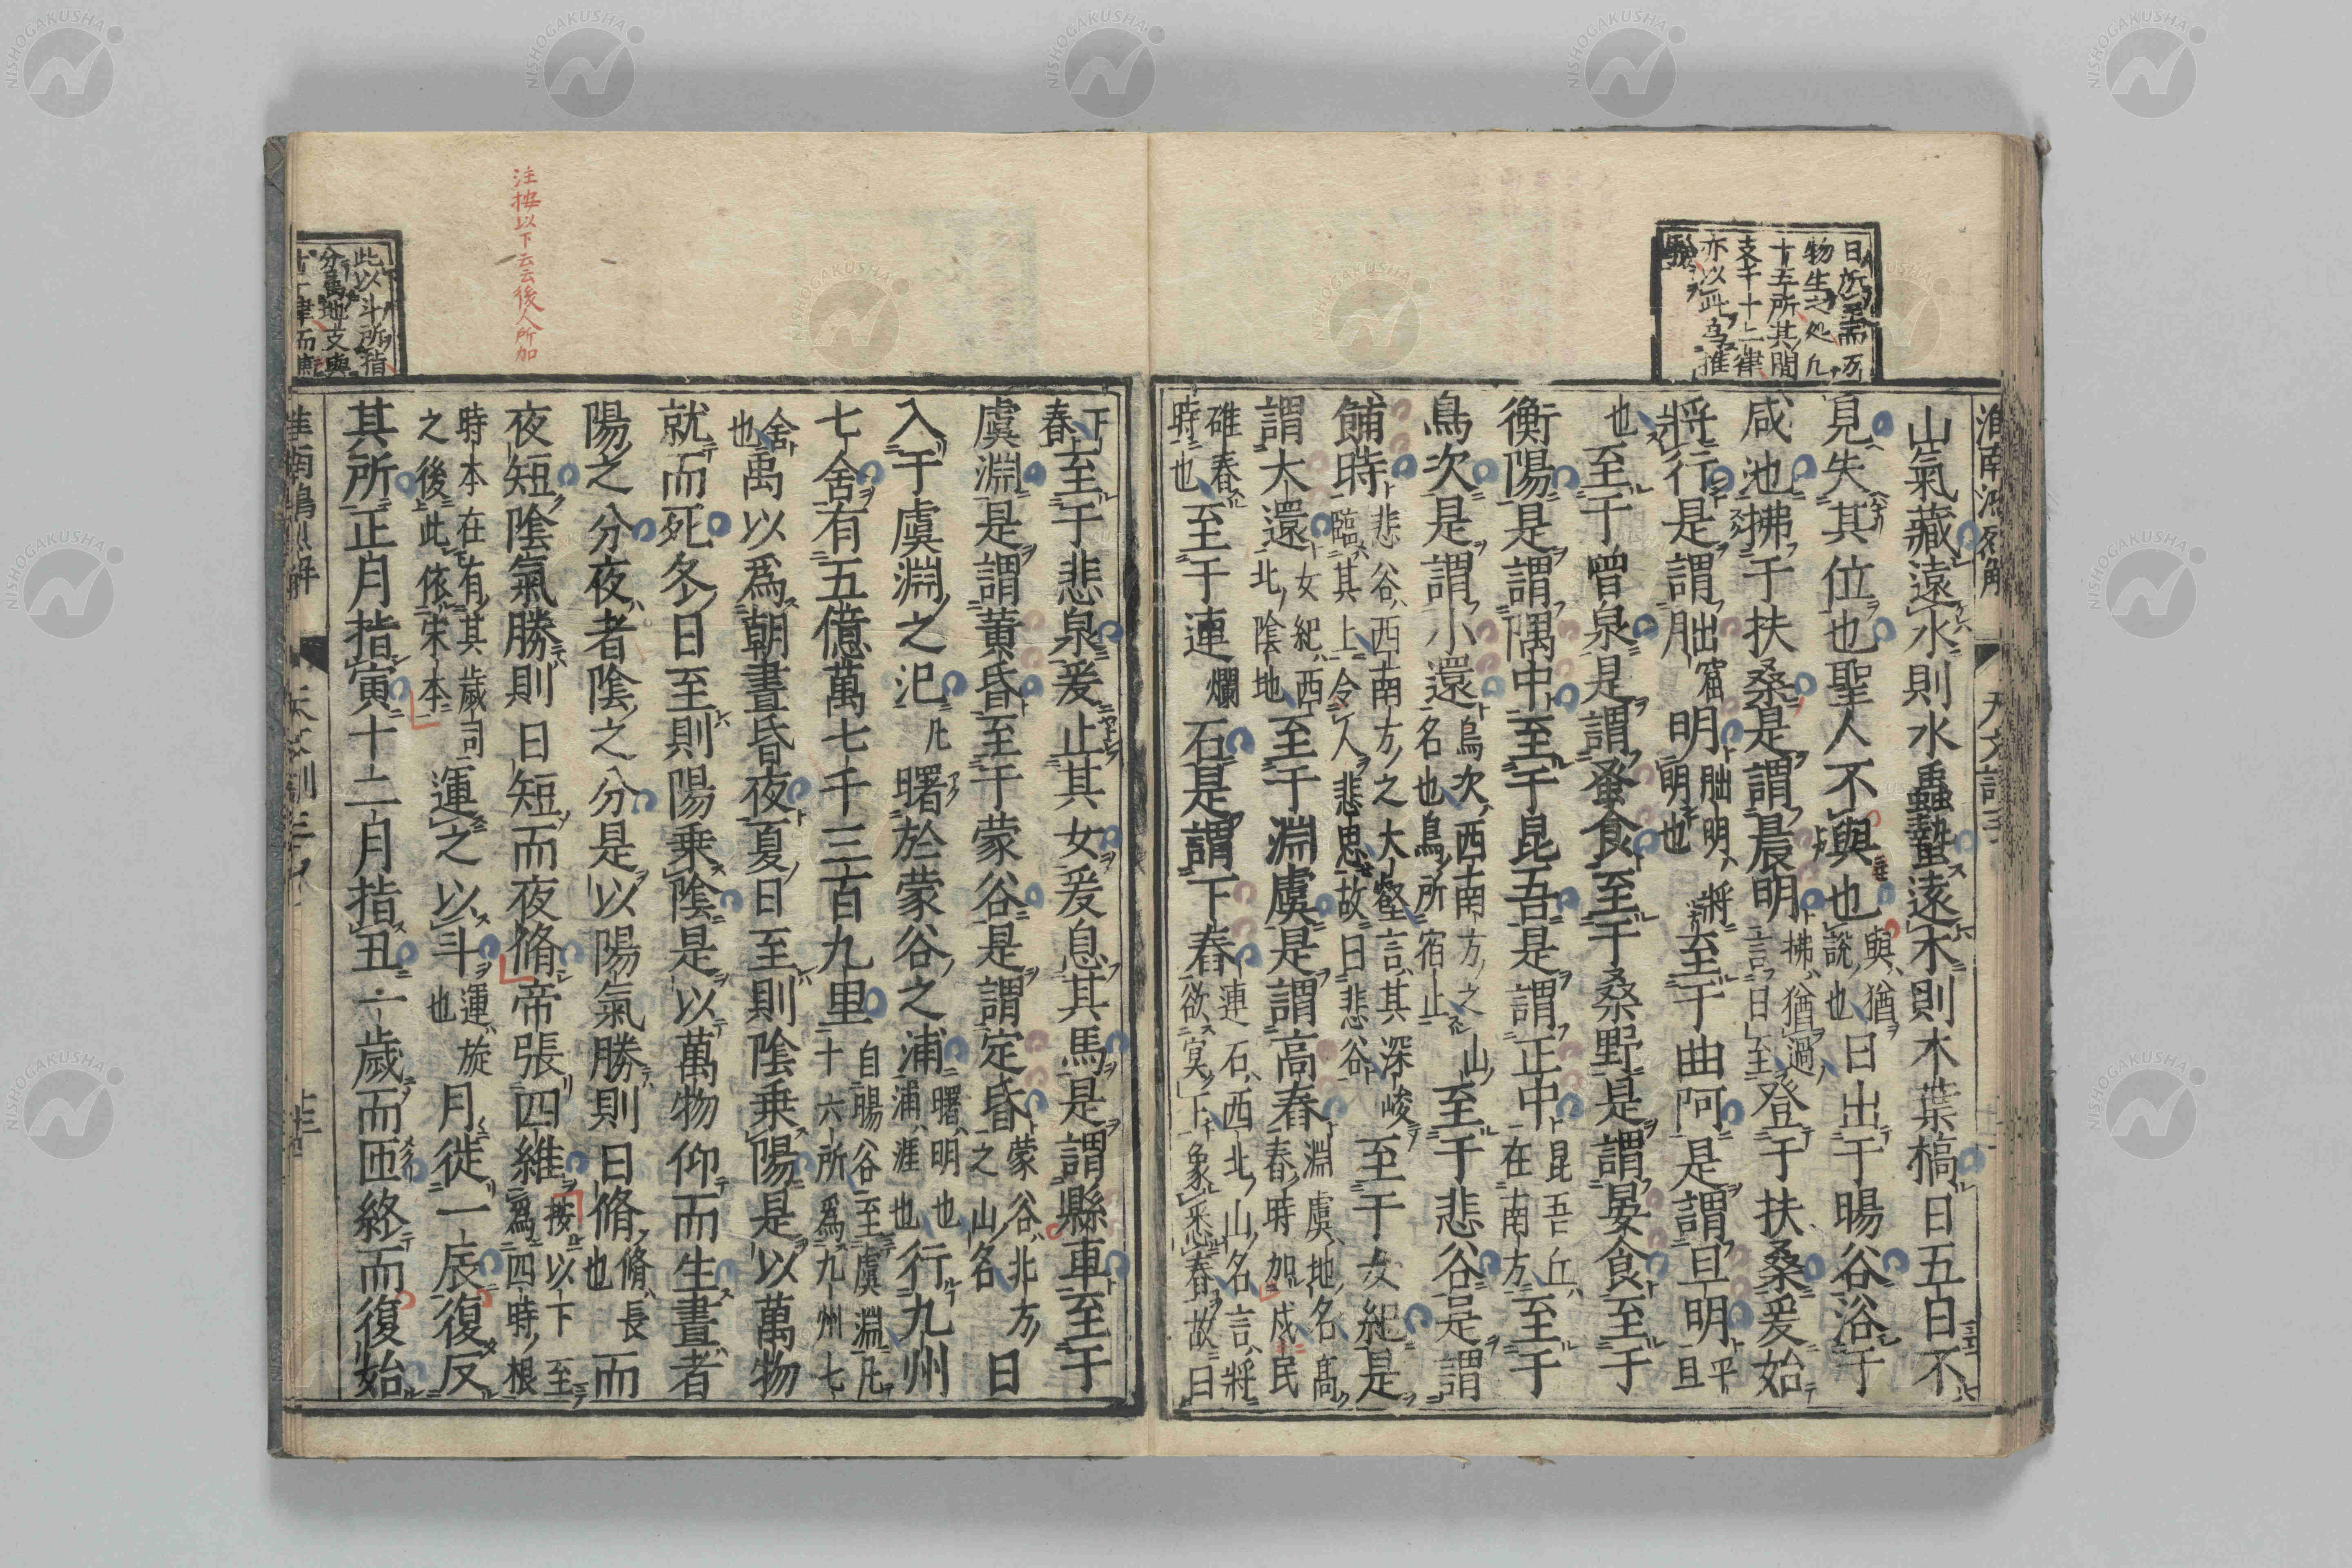 日所至而万
物生之处凡
十五所其間
支干十二律
亦以此為推
山氣藏遠水則水蟲蟄遠木則木葉槁日五日不
見失其位也聖人不與也與猶說也日出于暘谷浴于
咸池拂于扶桑是謂晨明拂猶過言日至登于扶桑爰始
將行是謂朏窟明朏明將明也至于曲阿是謂旦明平旦
也至于曾泉是謂蚤食至于桑野是謂晏食至于
衡陽是謂隅中至于昆吾是謂正中昆吾丘在南方至于
鳥次是謂小還鳥次西南方之山名也鳥所宿止至于悲谷是謂
餔時悲谷西南方之大壑言其深峻臨其上令人悲思故曰悲谷至于女紀是
謂大還女紀西北陰地至于淵虞是謂高舂淵虞地名高舂時加戌民
碓舂時也至于連爛石是謂下舂連石西北山名言將欲冥下象悉舂故曰
下舂至于悲泉爰止其女爰息其馬是謂縣車至于
虞淵是謂黄昏至于蒙谷是謂定昏蒙谷北方之山名日
入于虞淵之汜曙於蒙谷之浦曙明也浦涯也行九州
七舍有五億萬七千三百九里自暘谷至虞淵凡十六所為九州七
舍也禹以爲朝晝昏夜夏日至則陰乗陽是以萬物
就而死冬日至則陽乗陰是以萬物仰而生晝者
陽之分夜者陰之分是以陽氣勝則日脩脩長也而
夜短陰氣勝則日短而夜脩帝張四維按以下至爲四時根
時本在有其歲司之後此依宋本運之以斗運旋也月徙一辰復反
其所正月指寅十二月指丑一歲而匝終而復始
注按以下云云後人所加
此以斗所指
分為地支與
十二律而